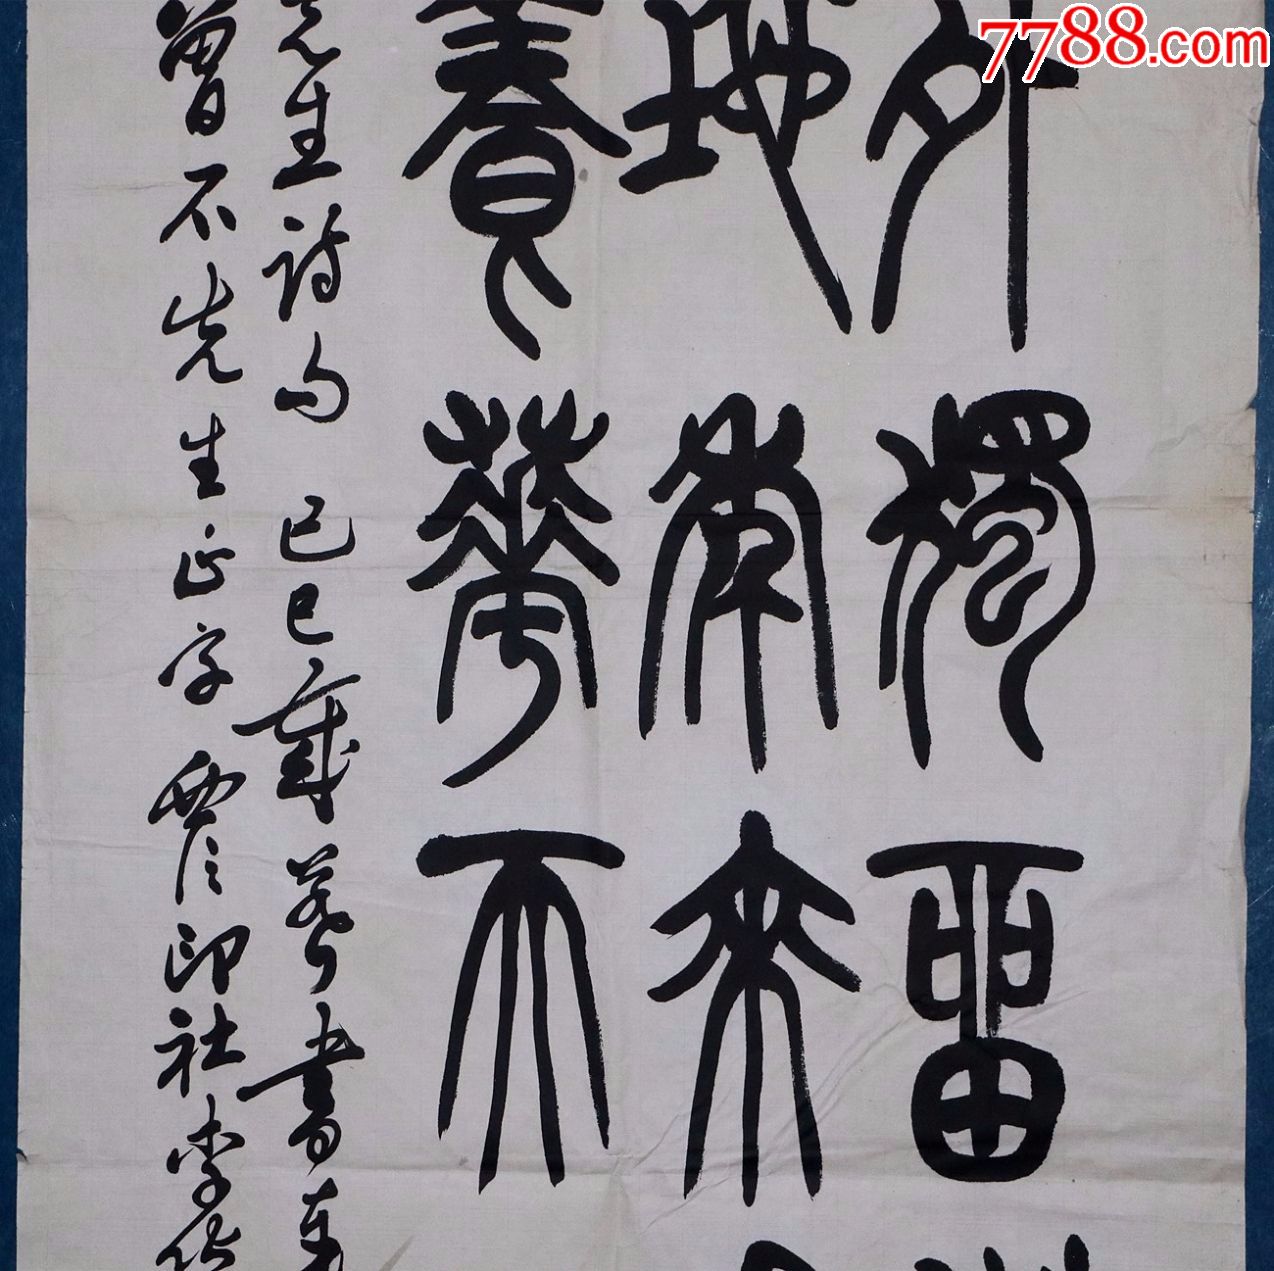 7788.com
外獨雷
地年來
養華不
先生詩句己巳歲暮書
曾不先生正字 西泠印社李